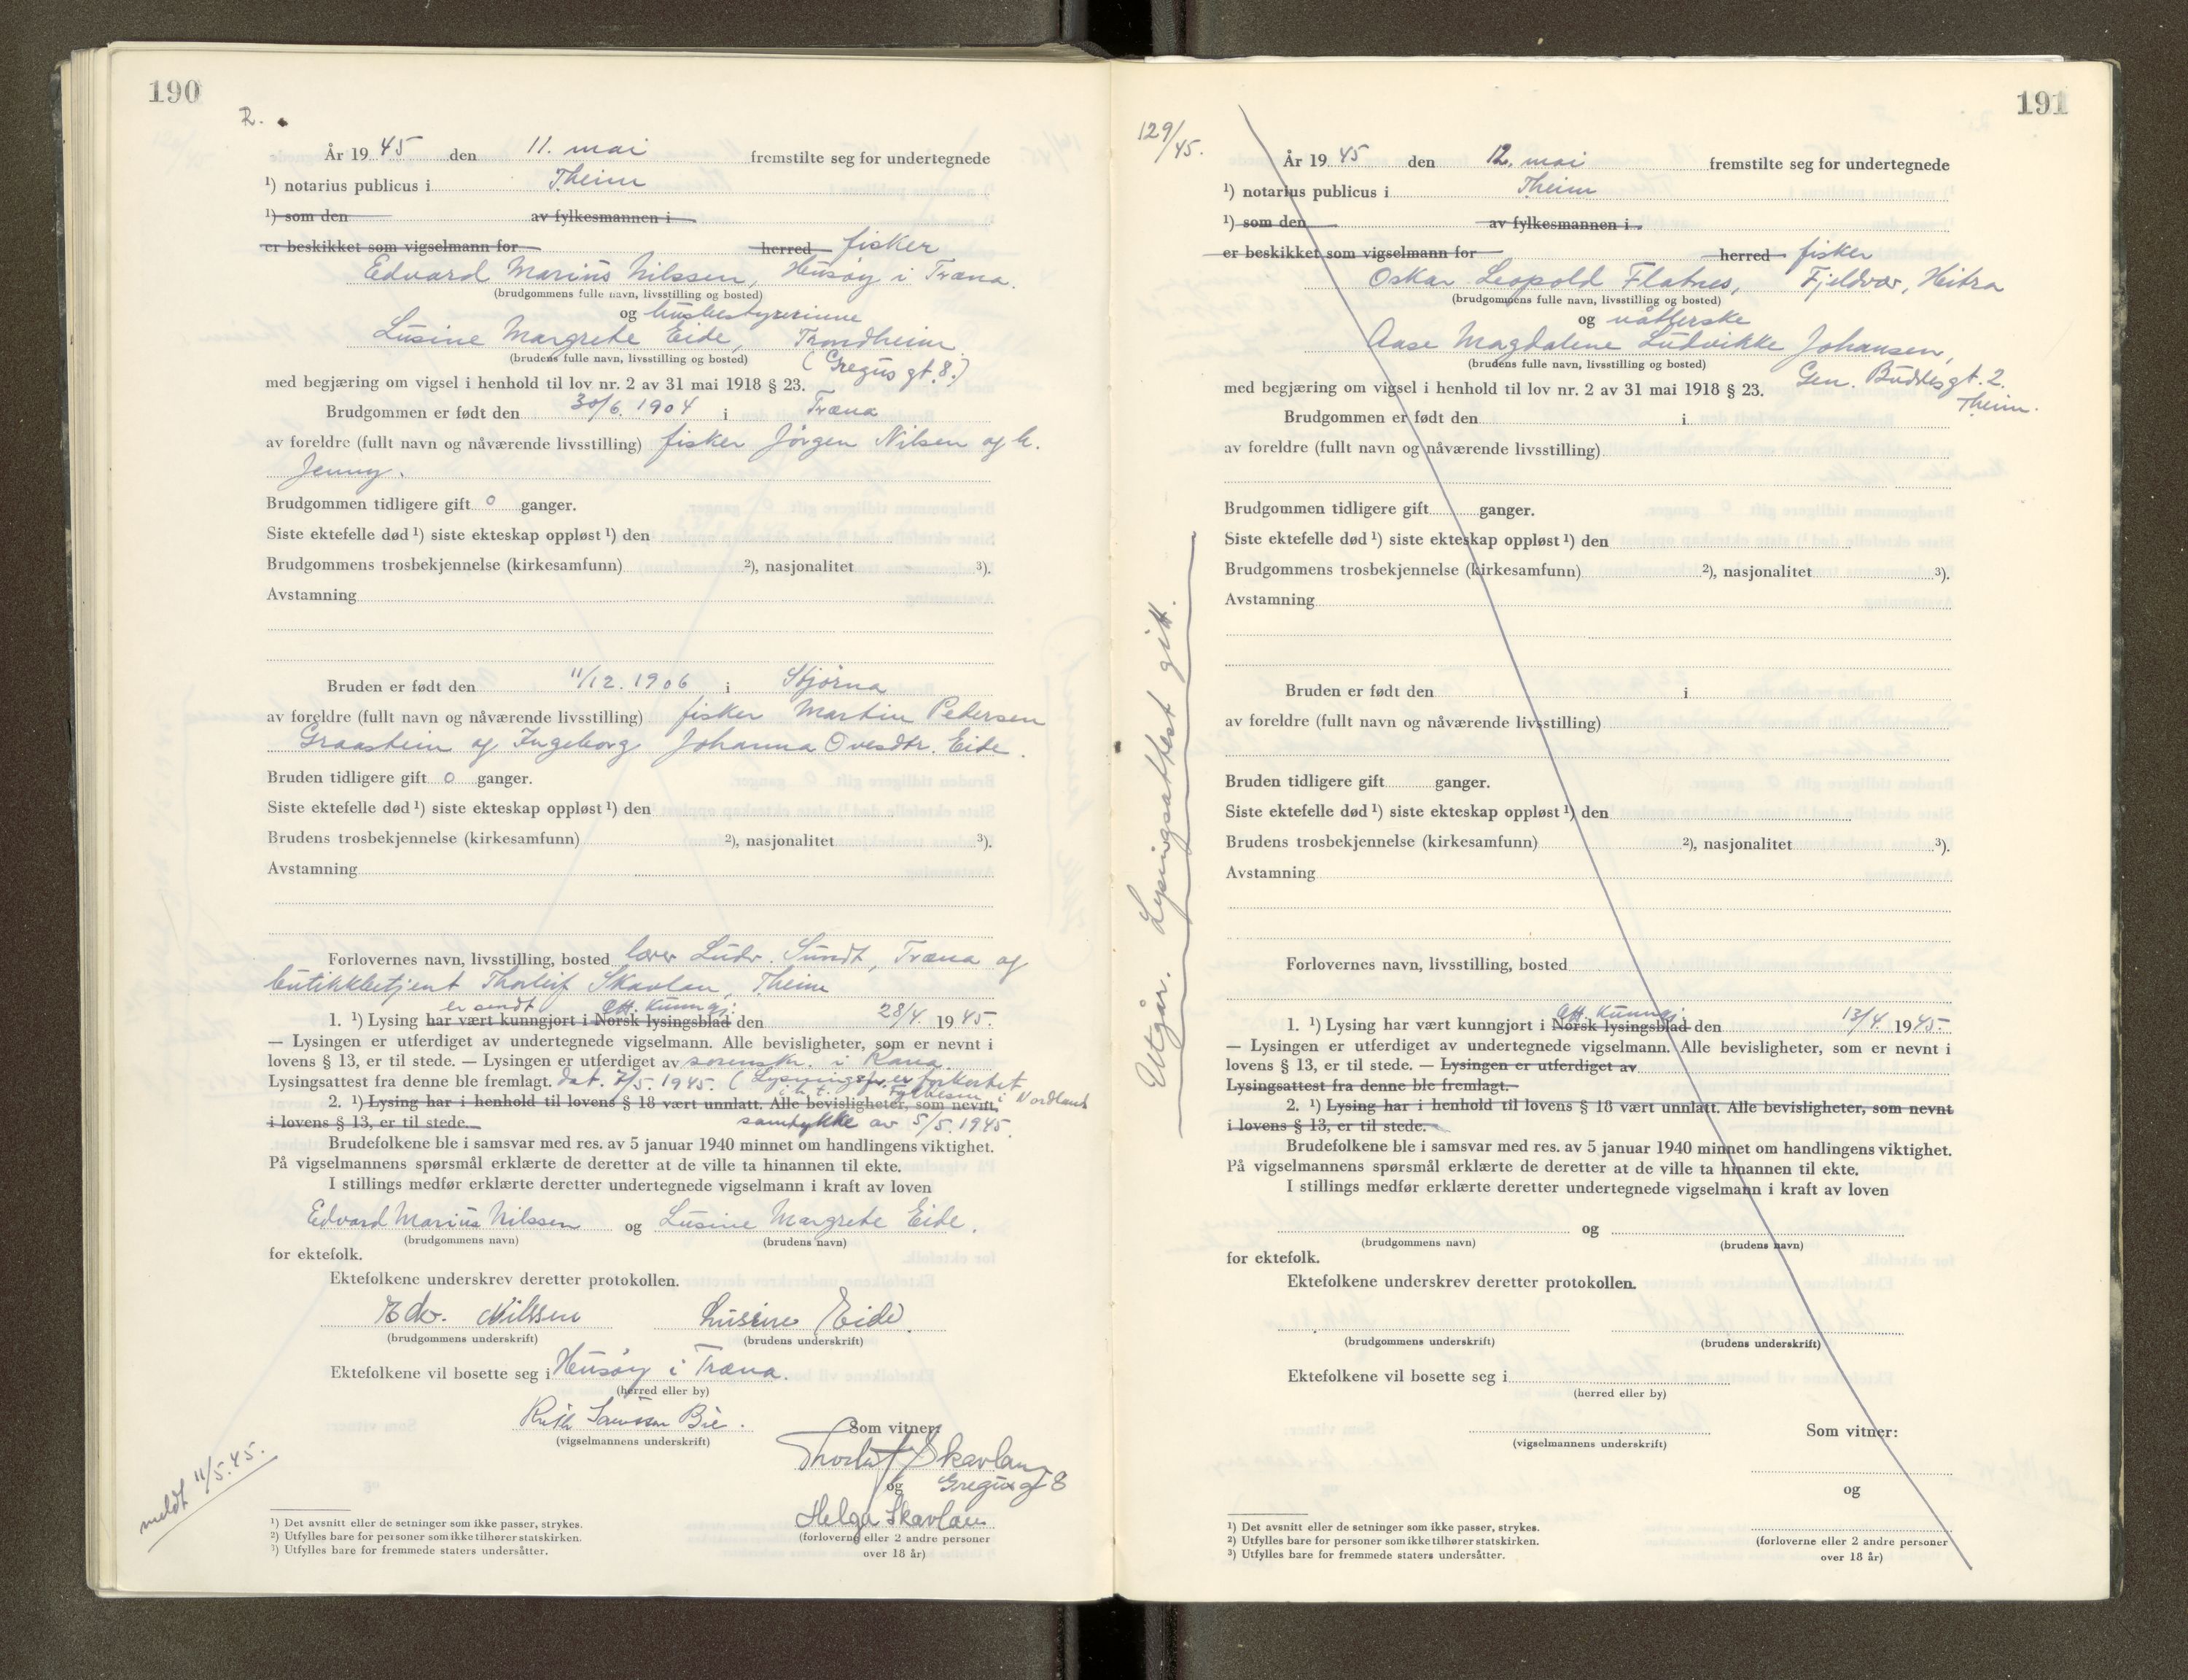 190
R.
År 1945 den 11. mai fremstilte seg for undertegnede
¹) notarius publicus i Theim
¹) som den av fylkesmannen i
er beskikket som vigselmann for herred fisker
Edvard Marius Nilssen, Husøy i Træna.
(brudgommens fulle navn, livsstilling og bosted)
og husbestyrerinne
Lusine Margrete Eide, Trondheim
(brudens fulle navn, livsstilling og bosted) (Gregus gt. 8.)
med begjæring om vigsel i henhold til lov nr. 2 av 31 mai 1918 § 23.
Brudgommen er født den 30/6. 1904 i Træna
av foreldre (fullt navn og nåværende livsstilling) fisker Jørgen Nilsen og h.
Jenny.
Brudgommen tidligere gift 0 ganger.
Siste ektefelle død ¹) siste ekteskap oppløst ¹) den
Brudgommens trosbekjennelse (kirkesamfunn) ²), nasjonalitet ³).
Avstamning
Bruden er født den 11/12. 1906 i Stjørna
av foreldre (fullt navn og nåværende livsstilling) fisker Martin Petersen
Graastein og Ingeborg Johanna Ovesdtr. Eide.
Bruden tidligere gift 0 ganger.
Siste ektefelle død ¹) siste ekteskap oppløst ¹) den
Brudens trosbekjennelse (kirkesamfunn) ²), nasjonalitet ³).
Avstamning
Forlovernes navn, livsstilling, bosted lærer Ludv. Sundt, Træna og
butikkbetjent Thorleif Skavlan, Theim
er sendt Off. Kunngj.
1. ¹) Lysing har vært kunngjort i Norsk lysingsblad den 28/4. 1945.
— Lysingen er utferdiget av undertegnede vigselmann. Alle bevisligheter, som er nevnt i
lovens § 13, er til stede. — Lysingen er utferdiget av sorenskr. i Rana.
Lysingsattest fra denne ble fremlagt. dat. 7/5. 1945. (Lysningsfr. er forkortet
i h.t. Fylkesm. i Nordland
2. ¹) Lysing har i henhold til lovens § 18 vært unnlatt. Alle bevisligheter, som nevnt
i lovens § 13, er til stede. samtykke av 5/5. 1945.
Brudefolkene ble i samsvar med res. av 5 januar 1940 minnet om handlingens viktighet.
På vigselmannens spørsmål erklærte de deretter at de ville ta hinannen til ekte.
I stillings medfør erklærte deretter undertegnede vigselmann i kraft av loven
Edvard Marius Nilssen og Lusine Margrete Eide.
(brudgommens navn) (brudens navn)
for ektefolk.
Ektefolkene underskrev deretter protokollen.
Edv. Nilssen Lusine Eide.
(brudgommens underskrift) (brudens underskrift)
Ektefolkene vil bosette seg i Husøy i Træna.
(herred eller by)
Ruth Bie.
(vigselmannens underskrift)
Som vitner:
Thorleif Skavlan
og Gregusg 8
Helga Skavlan
(forloverne eller 2 andre personer
over 18 år)
meldt 11/5.45.
¹) Det avsnitt eller de setninger som ikke passer, strykes.
²) Utfylles bare for personer som ikke tilhører statskirken.
³) Utfylles bare for fremmede staters undersåtter.
191
129/45.
År 1945 den 12. mai fremstilte seg for undertegnede
¹) notarius publicus i Theim
¹) som den av fylkesmannen i
er beskikket som vigselmann for herred fisker
Oskar Leopold Flatnes, Fjeldvær, Hitra
(brudgommens fulle navn, livsstilling og bosted)
og nåtlerske
Aase Magdalene Ludvikke Johansen,
(brudens fulle navn, livsstilling og bosted)
Gen. Buddesgt. 2.
Theim.
med begjæring om vigsel i henhold til lov nr. 2 av 31 mai 1918 § 23.
Brudgommen er født den i
av foreldre (fullt navn og nåværende livsstilling)
Brudgommen tidligere gift ganger.
Siste ektefelle død ¹) siste ekteskap oppløst ¹) den
Brudgommens trosbekjennelse (kirkesamfunn) ²), nasjonalitet ³).
Avstamning
Utgår. Lysingsattest gitt.
Bruden er født den i
av foreldre (fullt navn og nåværende livsstilling)
Bruden tidligere gift ganger.
Siste ektefelle død ¹) siste ekteskap oppløst ¹) den
Brudens trosbekjennelse (kirkesamfunn) ²), nasjonalitet ³).
Avstamning
Forlovernes navn, livsstilling, bosted
Off. Kunngj.
1. ¹) Lysing har vært kunngjort i Norsk lysingsblad den 13/4. 1945.
— Lysingen er utferdiget av undertegnede vigselmann. Alle bevisligheter, som er nevnt i
lovens § 13, er til stede. — Lysingen er utferdiget av
Lysingsattest fra denne ble fremlagt.
2. ¹) Lysing har i henhold til lovens § 18 vært unnlatt. Alle bevisligheter, som nevnt
i lovens § 13, er til stede.
Brudefolkene ble i samsvar med res. av 5 januar 1940 minnet om handlingens viktighet.
På vigselmannens spørsmål erklærte de deretter at de ville ta hinannen til ekte.
I stillings medfør erklærte deretter undertegnede vigselmann i kraft av loven
og
(brudgommens navn) (brudens navn)
for ektefolk.
Ektefolkene underskrev deretter protokollen.
(brudgommens underskrift) (brudens underskrift)
Ektefolkene vil bosette seg i
(herred eller by)
Som vitner:
(vigselmannens underskrift)
og
(forloverne eller 2 andre personer
over 18 år)
¹) Det avsnitt eller de setninger som ikke passer, strykes.
²) Utfylles bare for personer som ikke tilhører statskirken.
³) Utfylles bare for fremmede staters undersåtter.